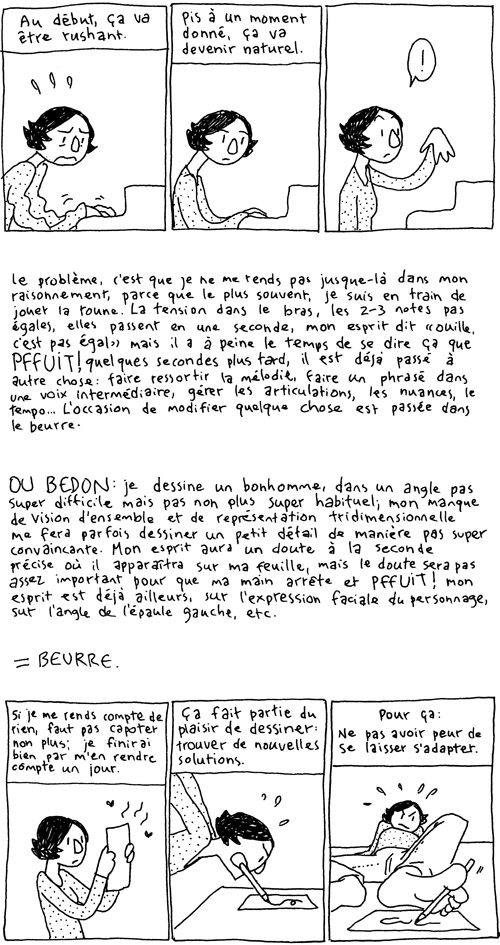 Au début, ça va
être rushant.
Pis à un moment
donné, ça va
devenir naturel.
!
Le problème, c'est que je ne me rends pas jusque-là dans mon
raisonnement, parce que le plus souvent, je suis en train de
jouer la toune. La tension dans le bras, les 2-3 notes pas
égales, elles passent en une seconde, mon esprit dit «ouille,
c'est pas égal» mais il a à peine le temps de se dire ça que
PFFUIT! quelques secondes plus tard, il est déjà passé à
autre chose: faire ressortir la mélodie, faire un phrasé dans
une voix intermédiaire, gérer les articulations, les nuances, le
tempo... L'occasion de modifier quelque chose est passée dans
le beurre.
OU BEDON: je dessine un bonhomme, dans un angle pas
super difficile mais pas non plus super habituel; mon manque
de vision d'ensemble et de représentation tridimensionnelle
me fera parfois dessiner un petit détail de manière pas super
convaincante. Mon esprit aura un doute à la seconde
précise où il apparaîtra sur ma feuille, mais le doute sera pas
assez important pour que ma main arrête et PFFUIT! mon
esprit est déjà ailleurs, sur l'expression faciale du personnage,
sur l'angle de l'épaule gauche, etc.
= BEURRE.
Si je me rends compte de
rien, faut pas capoter
non plus; je finirai
bien par m'en rendre
compte un jour.
Ça fait partie du
plaisir de dessiner:
trouver de nouvelles
solutions.
Pour ça:
Ne pas avoir peur de
se laisser s'adapter.